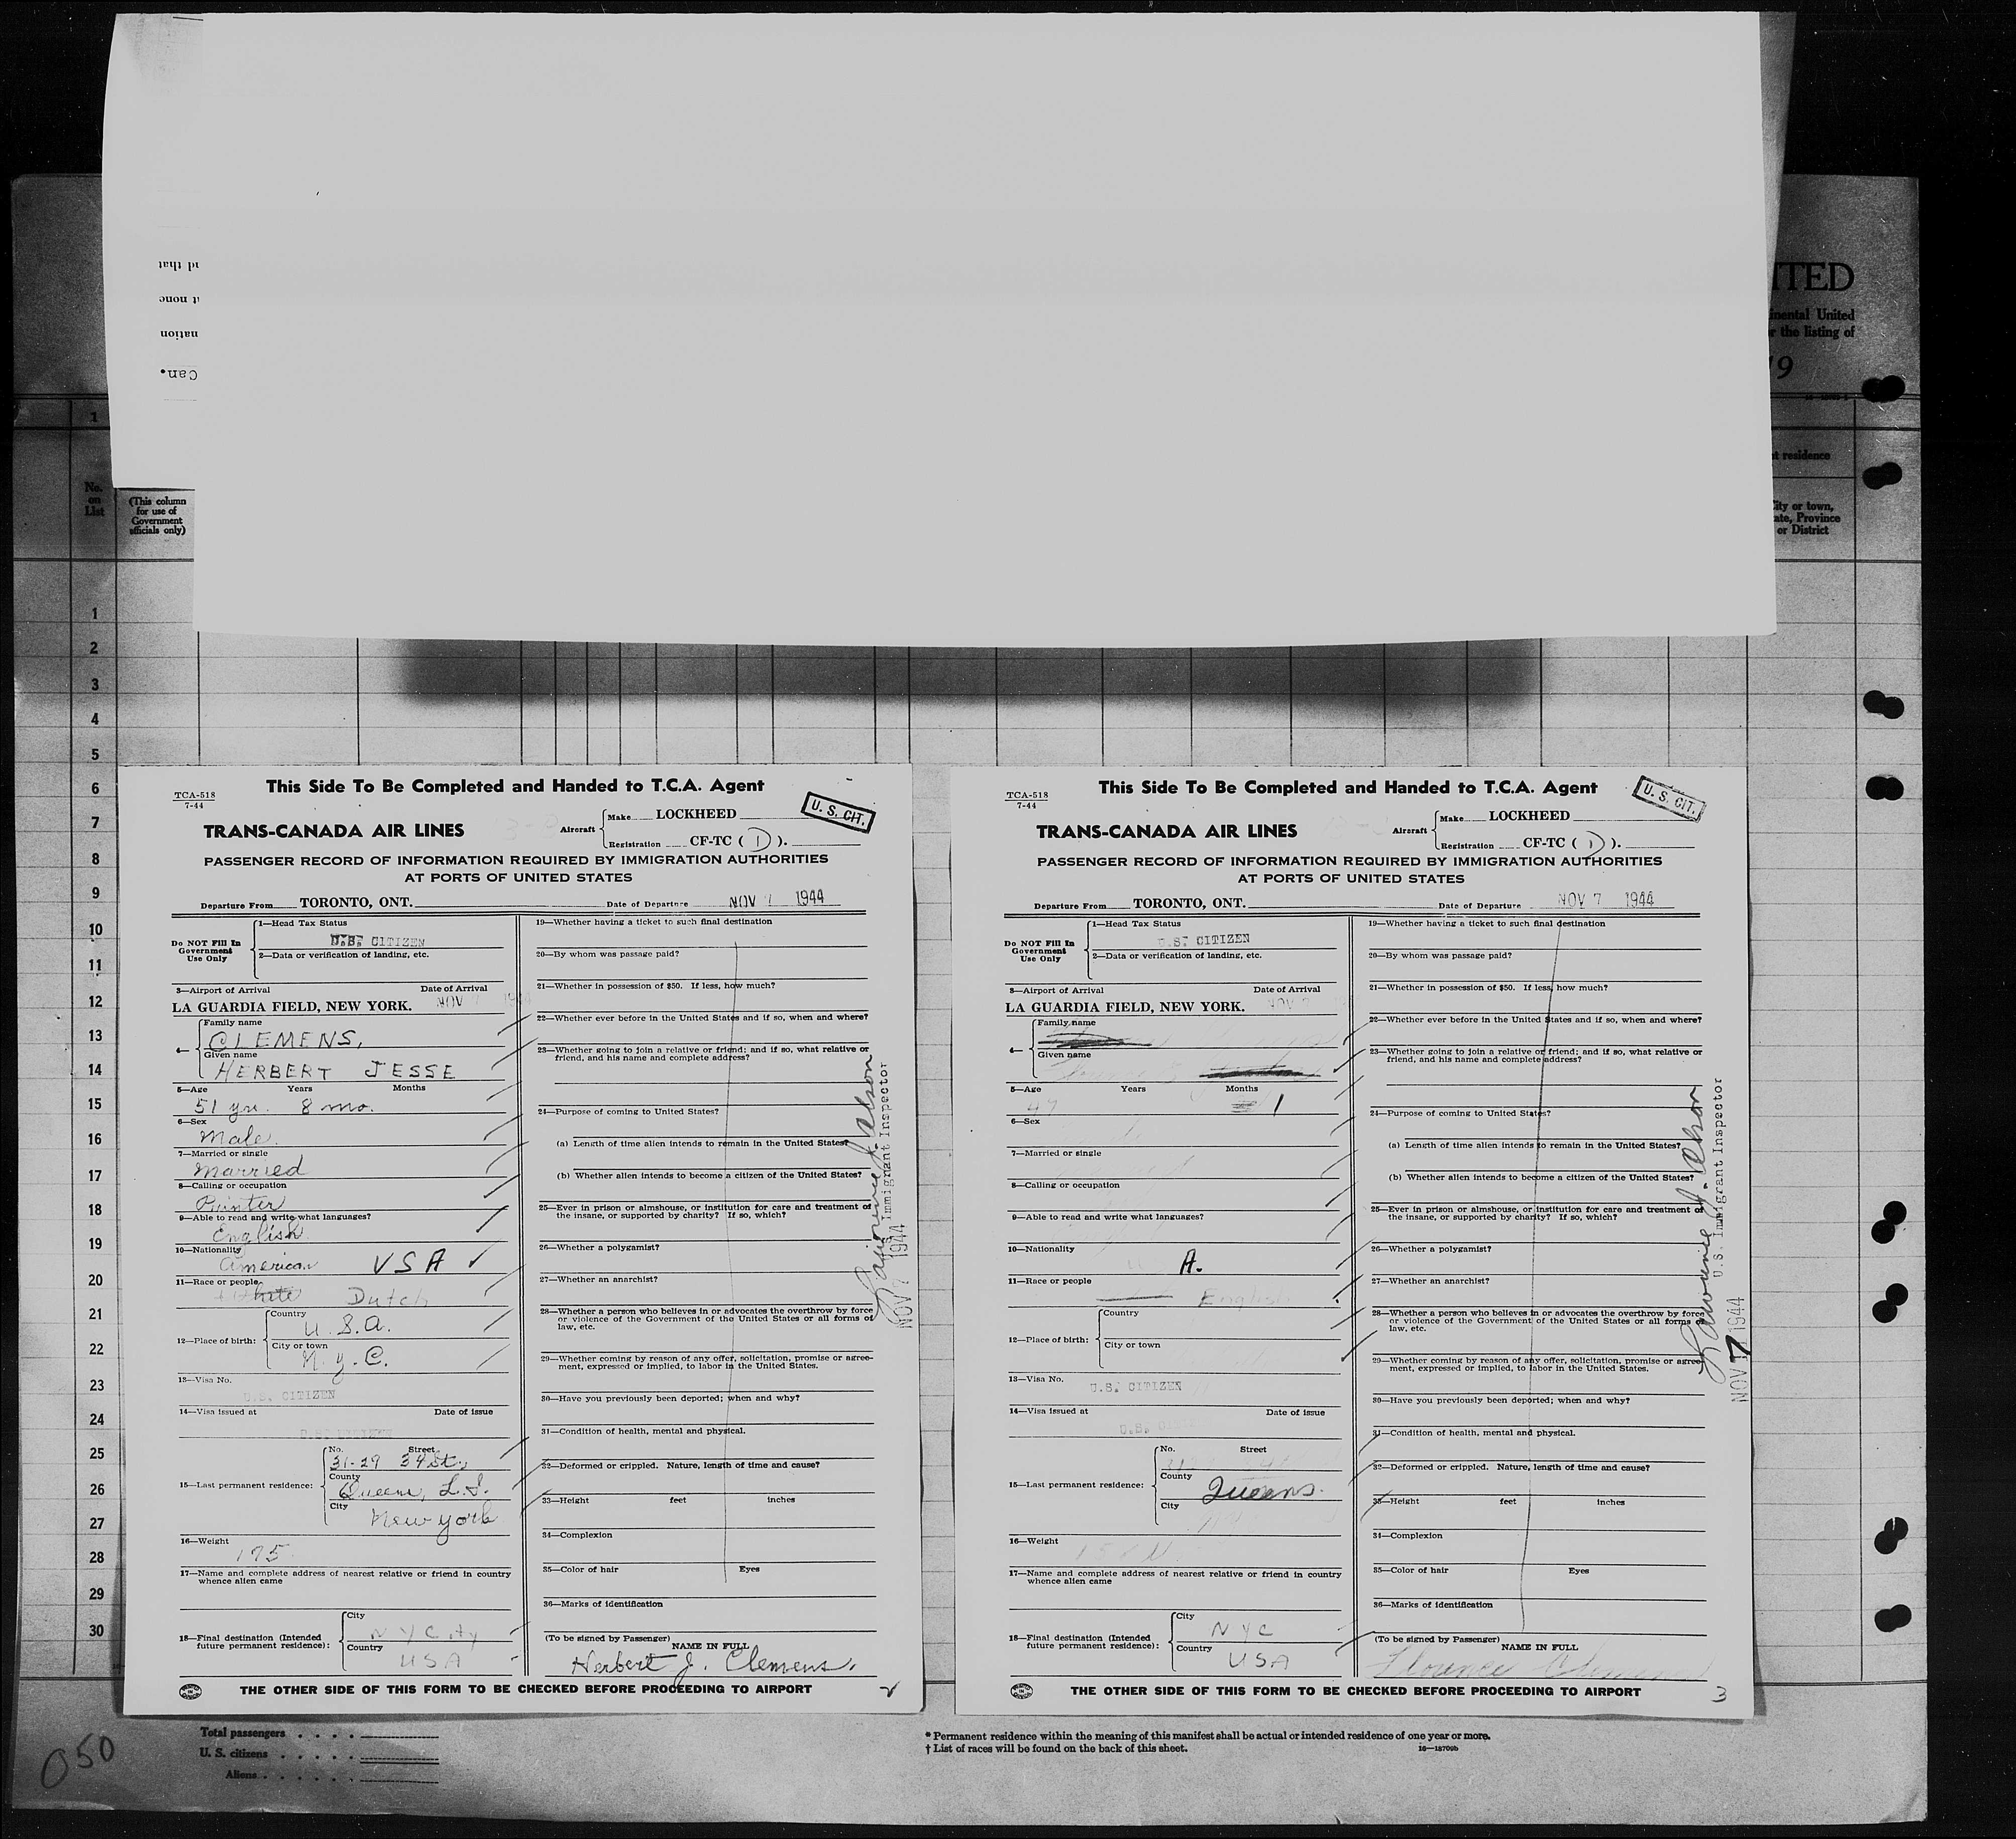 nd that
t none
nation
Can.
ITED
inental United
r the listing of
19
1
t residence
No.
on
List
(This column
for use of
Government
officials only)
City or town,
ate, Province
or District
1
2
3
4
5
6
7
8
9
10
11
12
13
14
15
16
17
18
19
20
21
22
23
24
25
26
27
28
29
30
This Side To Be Completed and Handed to T.C.A. Agent
TCA-518
7-44
U. S. CIT.
TRANS-CANADA AIR LINES
Aircraft
Make LOCKHEED
Registration CF-TC ( D ).
PASSENGER RECORD OF INFORMATION REQUIRED BY IMMIGRATION AUTHORITIES
AT PORTS OF UNITED STATES
Departure From TORONTO, ONT. Date of Departure NOV 7 1944
Do NOT Fill In
Government
Use Only
1—Head Tax Status
U.S. CITIZEN
2—Data or verification of landing, etc.
3—Airport of Arrival Date of Arrival
LA GUARDIA FIELD, NEW YORK. NOV 7 1944
4—
Family name
CLEMENS,
Given name
HERBERT JESSE
5—Age Years Months
51 yrs. 8 mo.
6—Sex
Male.
7—Married or single
Married
8—Calling or occupation
Printer
9—Able to read and write what languages?
English
10—Nationality
American USA
11—Race or people
White Dutch
12—Place of birth:
Country
U.S.A.
City or town
N.Y.C.
13—Visa No.
U.S. CITIZEN
14—Visa issued at Date of issue
U.S. CITIZEN
15—Last permanent residence:
No. Street
31-29 34 St.,
County
Queens, L.I.
City
New York
16—Weight
175
17—Name and complete address of nearest relative or friend in country
whence alien came
18—Final destination (Intended
future permanent residence):
City
N Y City
Country
USA
19—Whether having a ticket to such final destination
20—By whom was passage paid?
21—Whether in possession of $50. If less, how much?
22—Whether ever before in the United States and if so, when and where?
23—Whether going to join a relative or friend; and if so, what relative or
friend, and his name and complete address?
24—Purpose of coming to United States?
(a) Length of time alien intends to remain in the United States?
(b) Whether alien intends to become a citizen of the United States?
25—Ever in prison or almshouse, or institution for care and treatment of
the insane, or supported by charity? If so, which?
26—Whether a polygamist?
27—Whether an anarchist?
28—Whether a person who believes in or advocates the overthrow by force
or violence of the Government of the United States or all forms of
law, etc.
29—Whether coming by reason of any offer, solicitation, promise or agree-
ment, expressed or implied, to labor in the United States.
30—Have you previously been deported; when and why?
31—Condition of health, mental and physical.
32—Deformed or crippled. Nature, length of time and cause?
33—Height feet inches
34—Complexion
35—Color of hair Eyes
36—Marks of identification
(To be signed by Passenger)
NAME IN FULL
Herbert J. Clemens.
Immigrant Inspector
NOV 7 1944
THE OTHER SIDE OF THIS FORM TO BE CHECKED BEFORE PROCEEDING TO AIRPORT
2
This Side To Be Completed and Handed to T.C.A. Agent
TCA-518
7-44
U. S. CIT.
TRANS-CANADA AIR LINES
Aircraft
Make LOCKHEED
Registration CF-TC ( D ).
PASSENGER RECORD OF INFORMATION REQUIRED BY IMMIGRATION AUTHORITIES
AT PORTS OF UNITED STATES
Departure From TORONTO, ONT. Date of Departure NOV 7 1944
Do NOT Fill In
Government
Use Only
1—Head Tax Status
U.S. CITIZEN
2—Data or verification of landing, etc.
3—Airport of Arrival Date of Arrival
LA GUARDIA FIELD, NEW YORK. NOV 7
4—
Family name
Given name
5—Age Years Months
47 1
6—Sex
7—Married or single
8—Calling or occupation
9—Able to read and write what languages?
10—Nationality
A.
11—Race or people
English
12—Place of birth:
Country
City or town
13—Visa No.
U.S. CITIZEN
14—Visa issued at Date of issue
15—Last permanent residence:
No. Street
County
Queens.
City
16—Weight
17—Name and complete address of nearest relative or friend in country
whence alien came
18—Final destination (Intended
future permanent residence):
City
NYC
Country
USA
19—Whether having a ticket to such final destination
20—By whom was passage paid?
21—Whether in possession of $50. If less, how much?
22—Whether ever before in the United States and if so, when and where?
23—Whether going to join a relative or friend; and if so, what relative or
friend, and his name and complete address?
24—Purpose of coming to United States?
(a) Length of time alien intends to remain in the United States?
(b) Whether alien intends to become a citizen of the United States?
25—Ever in prison or almshouse, or institution for care and treatment of
the insane, or supported by charity? If so, which?
26—Whether a polygamist?
27—Whether an anarchist?
28—Whether a person who believes in or advocates the overthrow by force
or violence of the Government of the United States or all forms of
law, etc.
29—Whether coming by reason of any offer, solicitation, promise or agree-
ment, expressed or implied, to labor in the United States.
30—Have you previously been deported; when and why?
31—Condition of health, mental and physical.
32—Deformed or crippled. Nature, length of time and cause?
33—Height feet inches
34—Complexion
35—Color of hair Eyes
36—Marks of identification
(To be signed by Passenger)
NAME IN FULL
Florence Clemens
U.S. Immigrant Inspector
NOV 7 1944
THE OTHER SIDE OF THIS FORM TO BE CHECKED BEFORE PROCEEDING TO AIRPORT
3
Total passengers
U. S. citizens
Aliens
* Permanent residence within the meaning of this manifest shall be actual or intended residence of one year or more.
† List of races will be found on the back of this sheet.
16—18709b
050